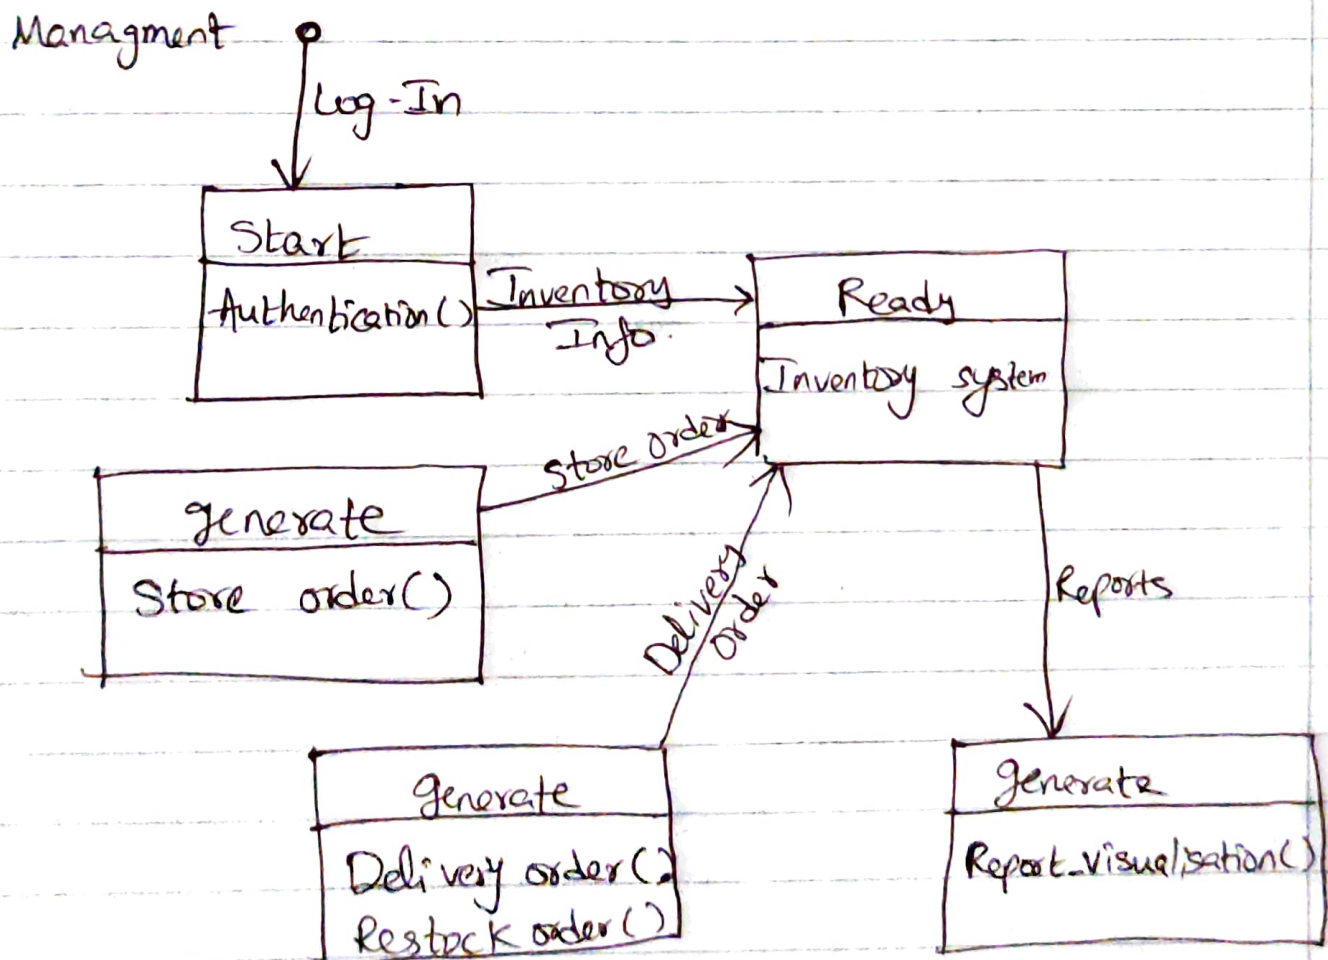 Managment
Log-In
Start
Authentication()
Inventory
Info.
Ready
Inventory system
Store order
generate
Store order()
Delivery
order
Reports
generate
Delivery order()
Restock order()
generate
Report_visualisation()